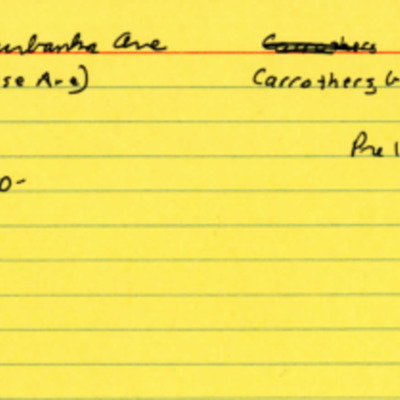 urbanks Ave Carrothers
se Ave) Carrothers G
Pre 1
0-